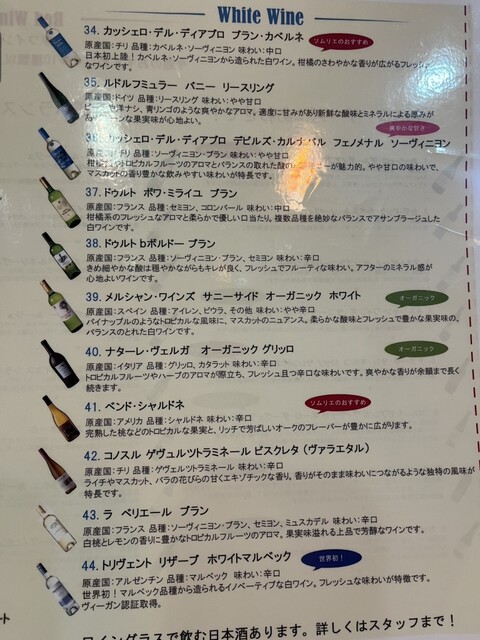 White Wine
34. カッシェロ・デル・ディアブロ ブラン・カベルネ
ソムリエのおすすめ
原産国：チリ 品種：カベルネ・ソーヴィニヨン 味わい：中口
日本初上陸！カベルネ・ソーヴィニヨンから造られた白ワイン。柑橘のさわやかな香りが広がるフレッシュ
なワインです。
35. ルドルフミュラー バニー リースリング
原産国：ドイツ 品種：リースリング 味わい：やや甘口
洋ナシ、青リンゴのような爽やかなアロマ。適度に甘みがあり新鮮な酸味とミネラルによる厚みが
な果実味が心地よい。
爽やかな甘さ
36. カッシェロ・デル・ディアブロ デビルズ・カルナバル フェノメナル ソーヴィニヨン
原産国：チリ 品種：ソーヴィニヨン・ブラン 味わい：やや甘口
柑橘 トロピカルフルーツのアロマとバランスの取れた酸の が魅力的。やや甘口の味わいで、
マスカットの香り豊かな飲みやすい味わいが特長です。
37. ドゥルト ボワ・ミライユ ブラン
原産国：フランス 品種：セミヨン、コロンバール 味わい：中口
柑橘系のフレッシュなアロマと柔らかで優しい口当たり。複数品種を絶妙なバランスでアサンブラージュした
白ワインです。
38. ドゥルト bボルドー ブラン
原産国：フランス 品種：ソーヴィニヨン・ブラン、セミヨン 味わい：辛口
きめ細やかな酸は穏やかながらもキレが良く、フレッシュでフルーティな味わい。アフターのミネラル感が
心地よいワインです。
39. メルシャン・ワインズ サニーサイド オーガニック ホワイト
オーガニック
原産国：スペイン 品種：アイレン、ビウラ、その他 味わい：やや辛口
パイナップルのようなトロピカルな風味に、マスカットのニュアンス。柔らかな酸味とフレッシュで豊かな果実味の、
バランスのとれた白ワインです。
40. ナターレ・ヴェルガ オーガニック グリッロ
オーガニック
原産国：イタリア 品種：グリッロ、カタラット 味わい：辛口
トロピカルフルーツやハーブのアロマが際立ち、フレッシュ且つ辛口な味わいです。爽やかな香りが余韻まで長く
続きます。
41. ベンド・シャルドネ
ソムリエのおすすめ
原産国：アメリカ 品種：シャルドネ 味わい：辛口
完熟した桃などのトロピカルな果実と、リッチで芳ばしいオークのフレーバーが豊かに広がります。
42. コノスル ゲヴュルツトラミネール ビスクレタ (ヴァラエタル)
原産国：チリ 品種：ゲヴュルツトラミネール 味わい：辛口
ライチやマスカット、バラの花びらの甘くエキゾチックな香り。香りがそのまま味わいにつながるような独特の風味が
特長です。
43. ラ ベリエール ブラン
原産国：フランス 品種：ソーヴィニヨン・ブラン、セミヨン、ミュスカデル 味わい：辛口
白桃とレモンの香りに豊かなトロピカルフルーツのアロマ。果実味溢れる上品で芳醇なワインです。
44. トリヴェント リザーブ ホワイトマルベック
世界初！
原産国：アルゼンチン 品種：マルベック 味わい：辛口
世界初！マルベック品種から造られるイノベーティブな白ワイン。フレッシュな味わいが特徴です。
ヴィーガン認証取得。
ート
ワイングラスで飲む日本酒あります。詳しくはスタッフまで！